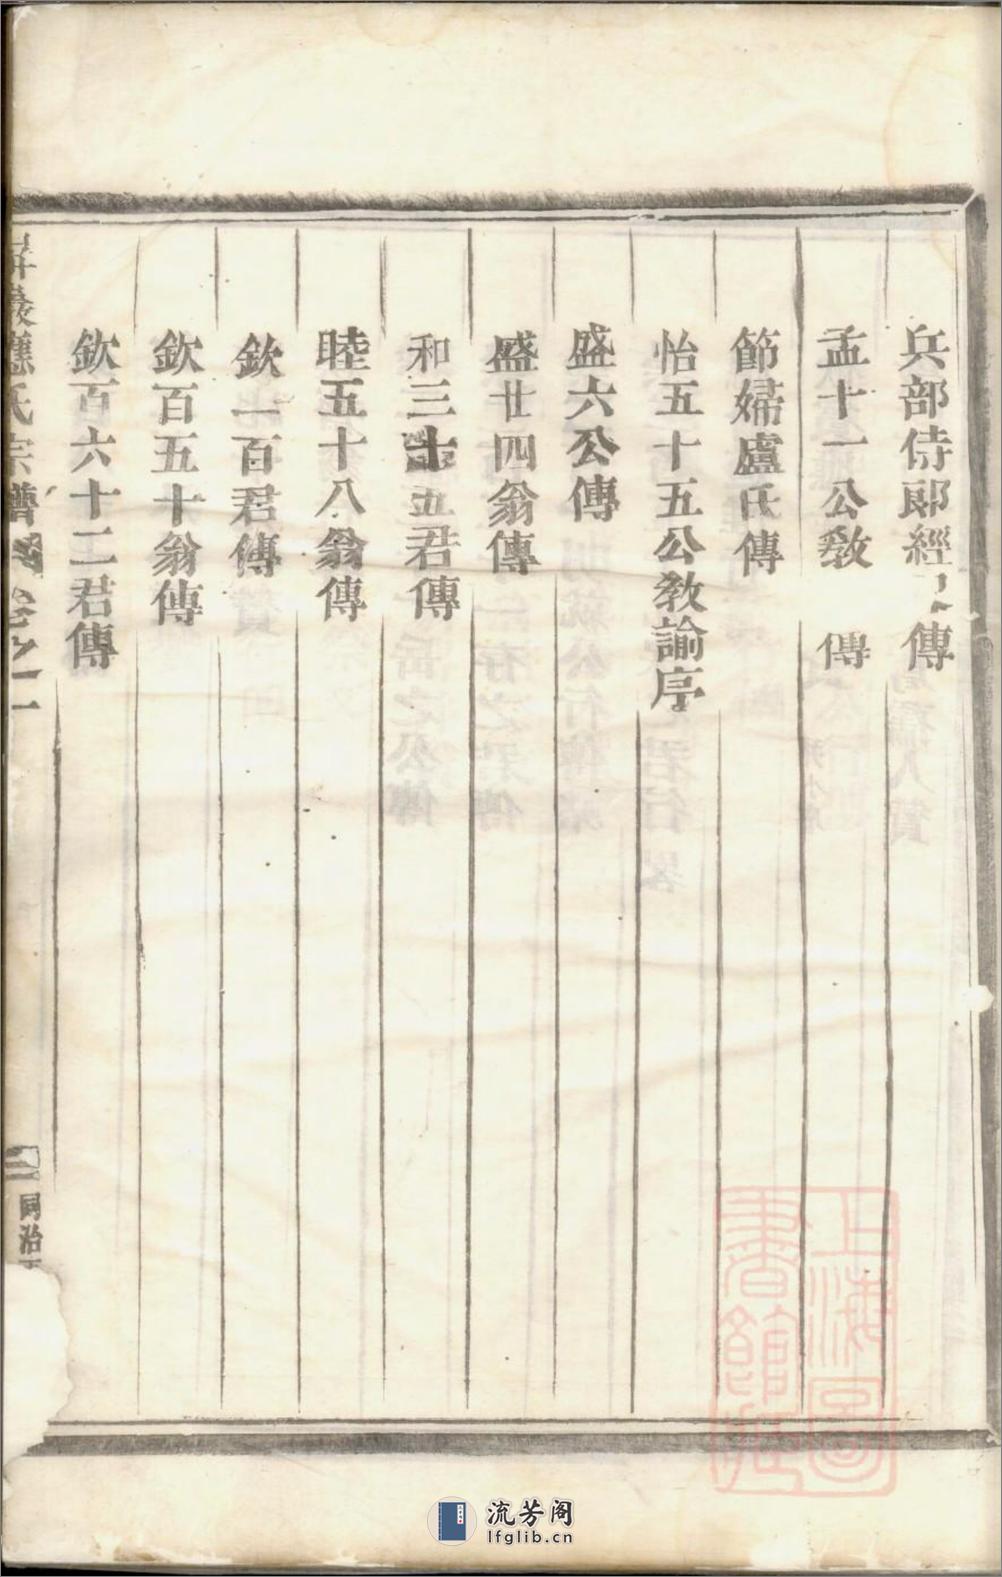 兵部侍郎經傳
孟十一公敎 傳
節婦盧氏傳
怡五十五公敎諭序
盛六公傳
盛廿四翁傳
和三十五君傳
睦五十八翁傳
欽一百君傳
欽百五十翁傳
欽百六十二君傳
氏宗譜 卷之一
二
同治
上海圖書館藏
流芳阁
lfglib.cn